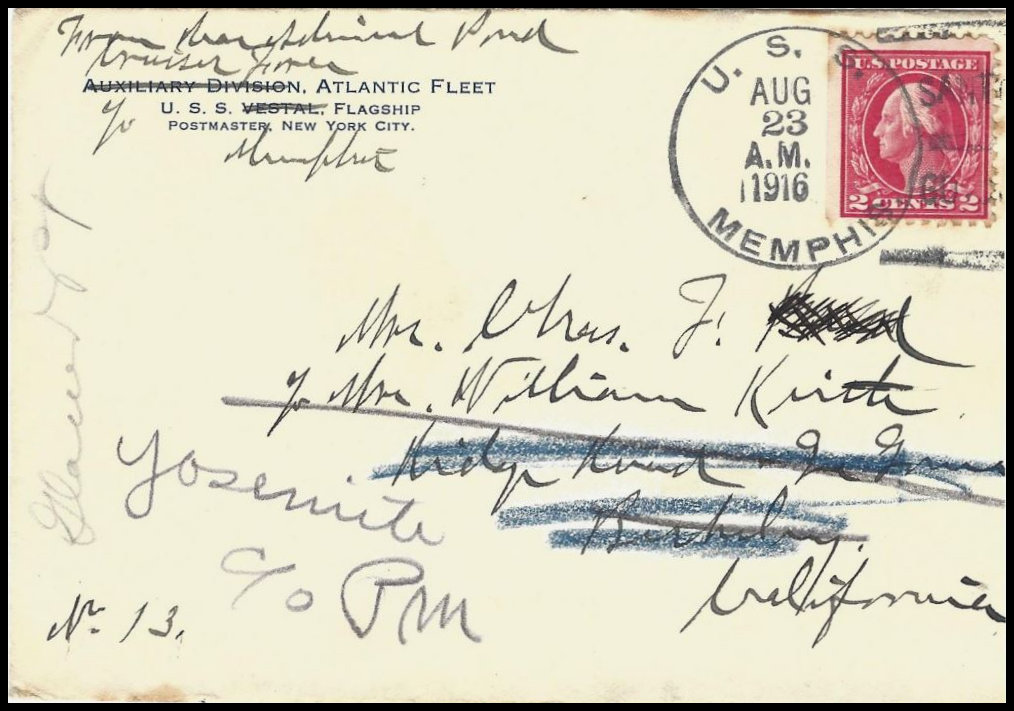 From Rear Admiral Pond
Cruiser Force
AUXILIARY DIVISION, ATLANTIC FLEET
U. S. S. VESTAL, FLAGSHIP
POSTMASTER, NEW YORK CITY.
c/o
Memphis
U. S. S.
AUG
23
A.M.
1916
MEMPHIS
U.S. POSTAGE
2 CENTS 2
Mrs. Chas. F.
c/o Mrs. William Keith
Ridge Road
Berkeley.
California
Yosemite
c/o PM
No 13.